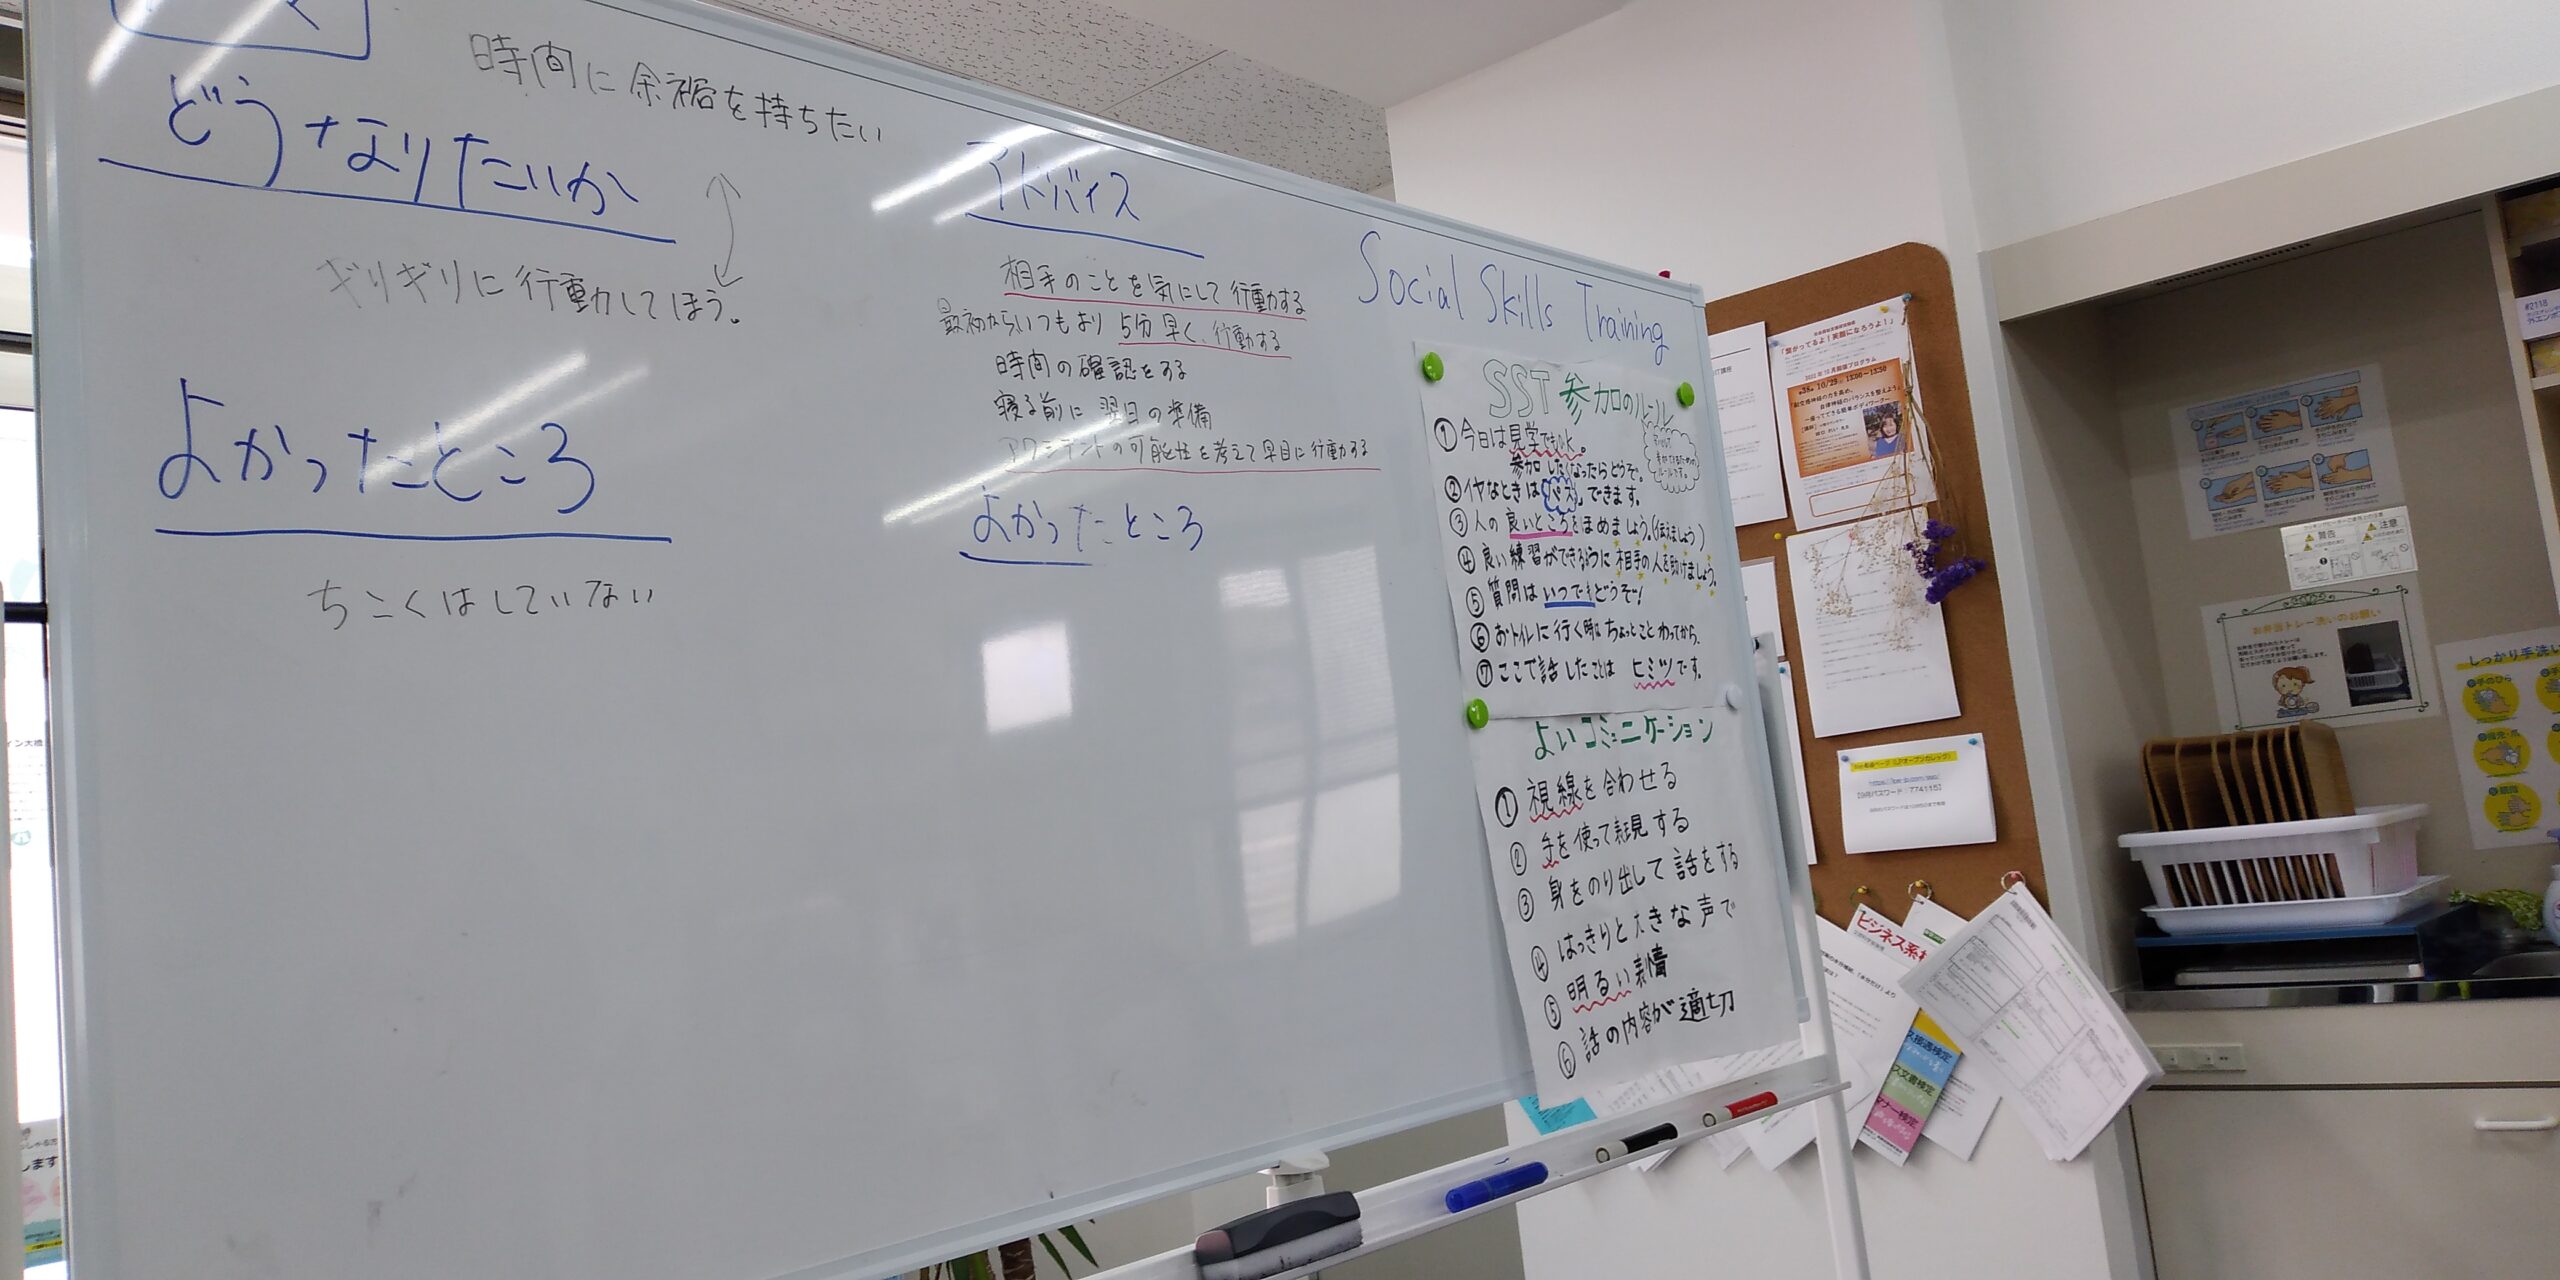 時間に余裕を持ちたい
どうなりたいか
ギリギリに行動してしまう。
よかったところ
ちこくはしていない
アドバイス
相手のことを気にして行動する
最初からいつもより5分早く、行動する
時間の確認をする
寝る前に翌日の準備
アクシデントの可能性を考えて早目に行動する
よかったところ
Social Skills Training
SST参加のルール
①今日は見学でもOK。
参加したくなったらどうぞ。
②イヤなときは「パス」できます。
③人の良いところをほめましょう。(伝えましょう)
④良い練習ができるように相手の人を助けましょう。
⑤質問はいつでもどうぞ!
⑥おトイレに行く時はちょっとことわってから。
⑦ここで話したことは ヒミツです。
よいコミュニケーション
①視線を合わせる
②手を使って表現する
③身をのり出して話をする
④はっきりと大きな声で
⑤明るい表情
⑥話の内容が適切
「繋がってるよ!笑顔になろうよ!」
10/29
13:00~13:30
【9月パスワード:774115】
ビジネス系
ス接遇検定
ス文書検定
マナー検定
警告
注意
お弁当トレー洗いのお願い
しっかり手洗い
手のひら
#2118
します